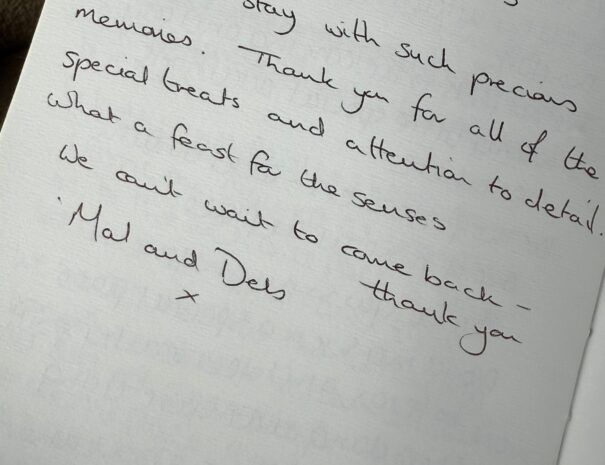 stay with such precious
memories. Thank you for all of the
special treats and attention to detail.
What a feast for the senses
We can't wait to come back -
thank you
Mal and Debs
x